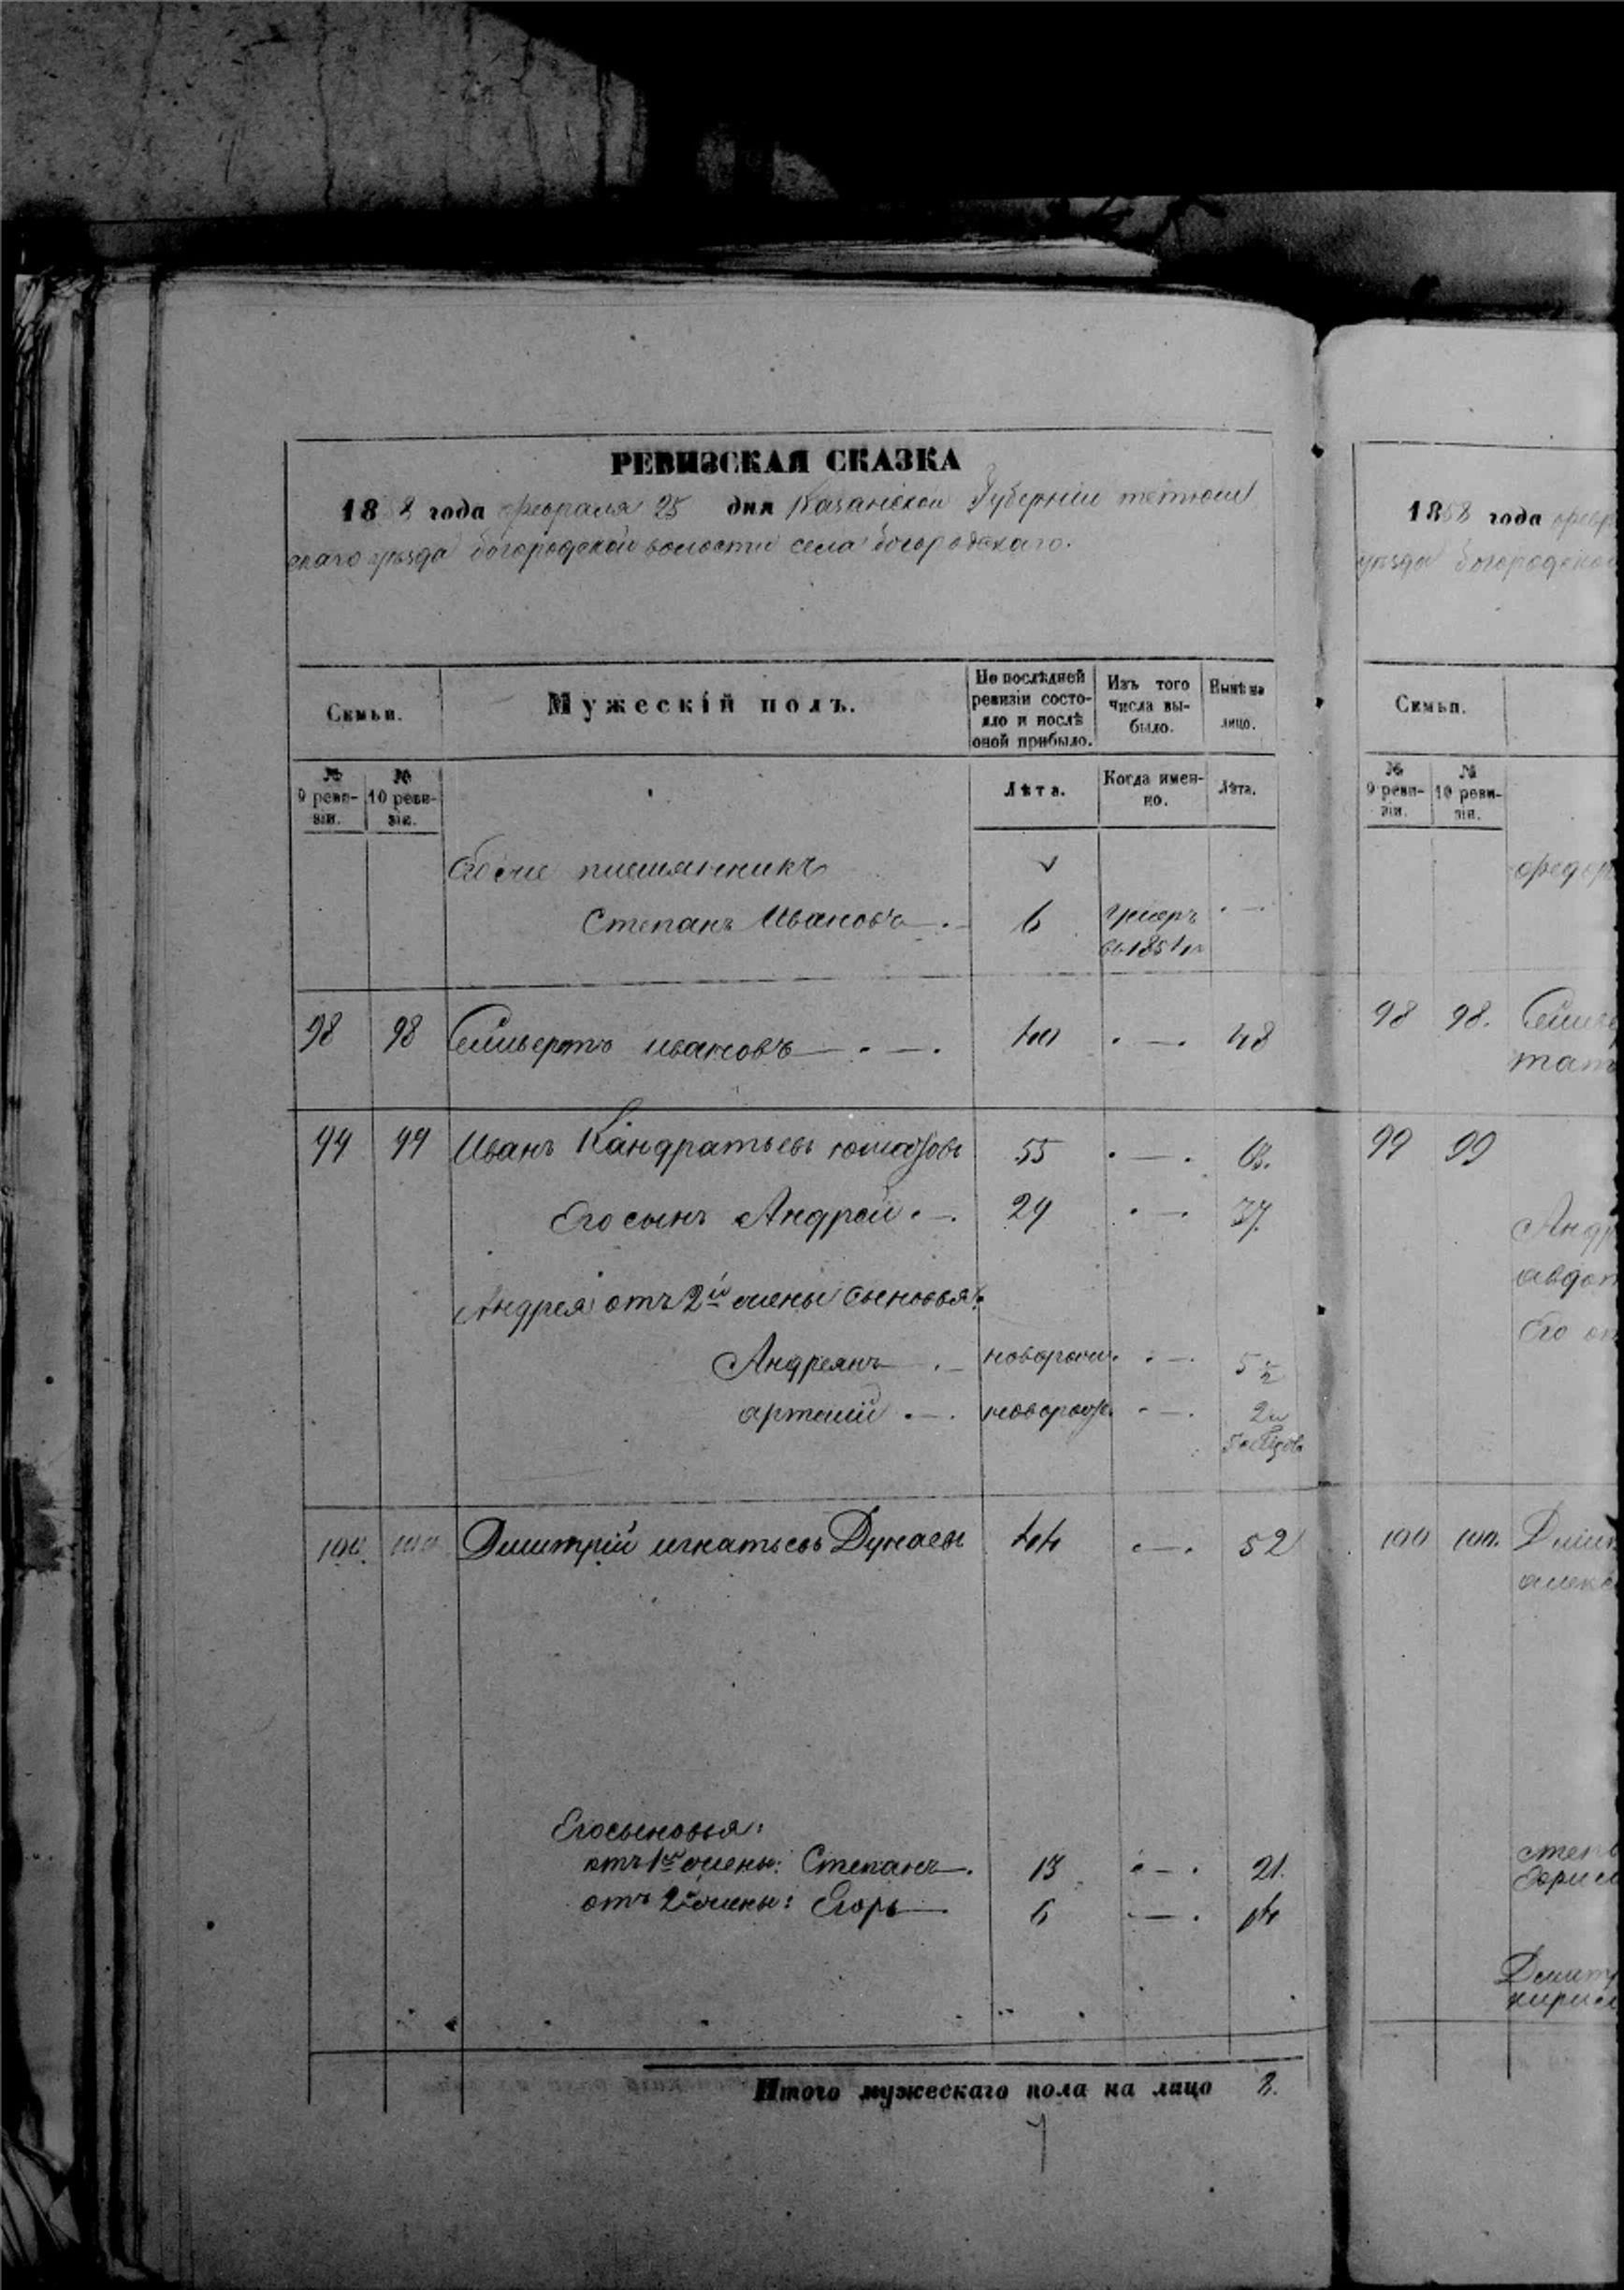 РЕВИЗСКАЯ СКАЗКА
18 8 года февраля 25 дня Казанской Губернии тетюш
скаго уѣзда богородской волости села богородскаго.
Семьи.
Мужескій полъ.
По послѣдней ревизіи состояло и послѣ оной прибыло.
Изъ того числа выбыло.
Нынѣ на лицо.
№ 9 ревизіи.
№ 10 ревизіи.
Лѣта.
Когда именно.
Лѣта.
племянникъ
Степанъ Ивановъ 6
98 98 Селиверстъ ивановъ 40 48
99 99 Иванъ Кандратьевъ 55 63.
Его сынъ Андрей 29 37.
Андрея отъ 2й жены сыновья:
Андреянъ новорож. 5 ½
артемій новорож. 2 и
5 месяцовъ
100. 100 Дмитрій игнатьевъ Дунаевъ 44 52
Его сыновья:
отъ 1й жены: Степанъ. 13 21.
отъ 2й жены: Егоръ 6 14
Итого мужескаго пола на лицо 8.
7
1858 года февр
уѣзда богородской
Семьи.
№ 9 ревизіи.
№ 10 ревизіи.
98 98.
99 99
авдот
Его
100 100.